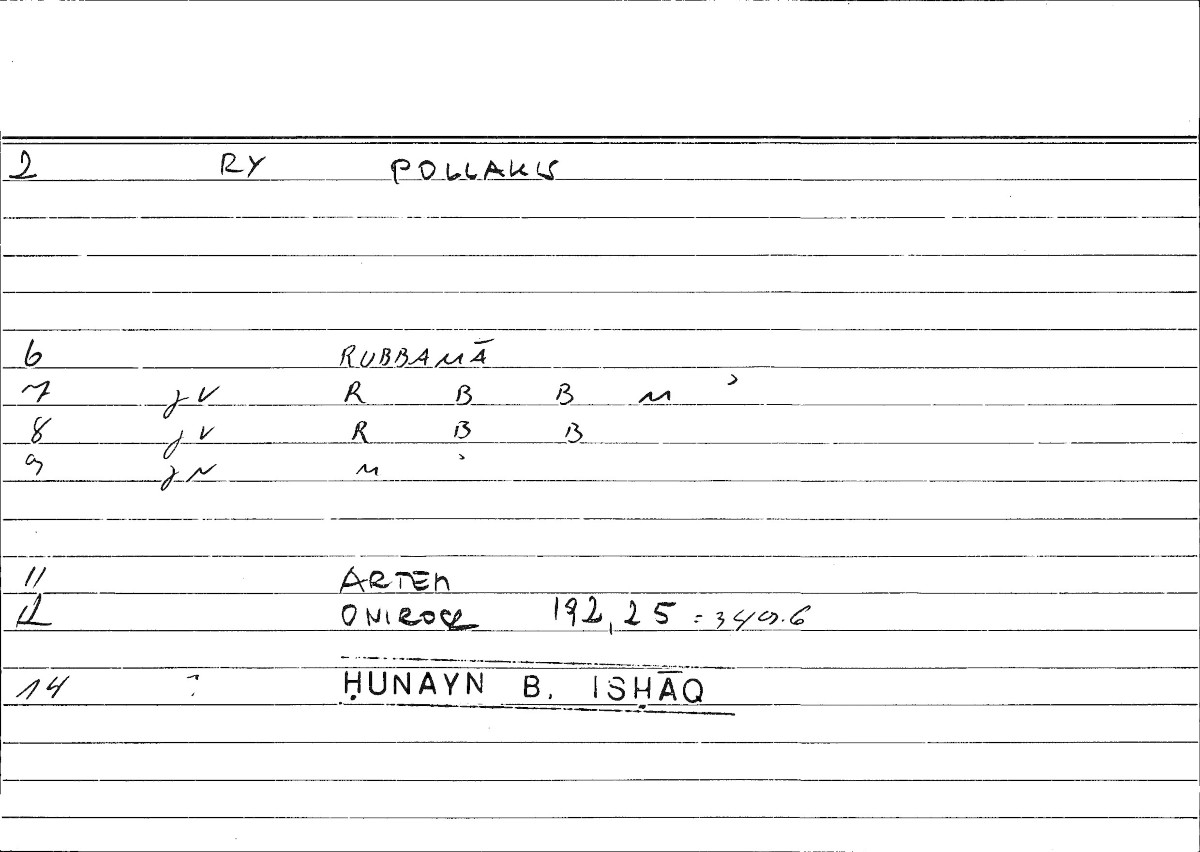 2 RY POLLAKIS
6 RUBBAMĀ
7 gV R B B M ʾ
8 gV R B B
9 gN M ʾ
11 ARTEM
12 ONIROCR 192,25 = 349.6
14 ? ḤUNAYN B. ISḤĀQ